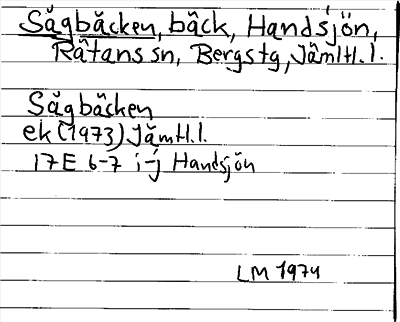 Sågbäcken, bäck, Handsjön,
Rätans sn, Bergs tg, Jämtl.l.
Sågbäcken
ek (1973) Jämtl.l.
17E 6-7 i-j Handsjön
LM 1974